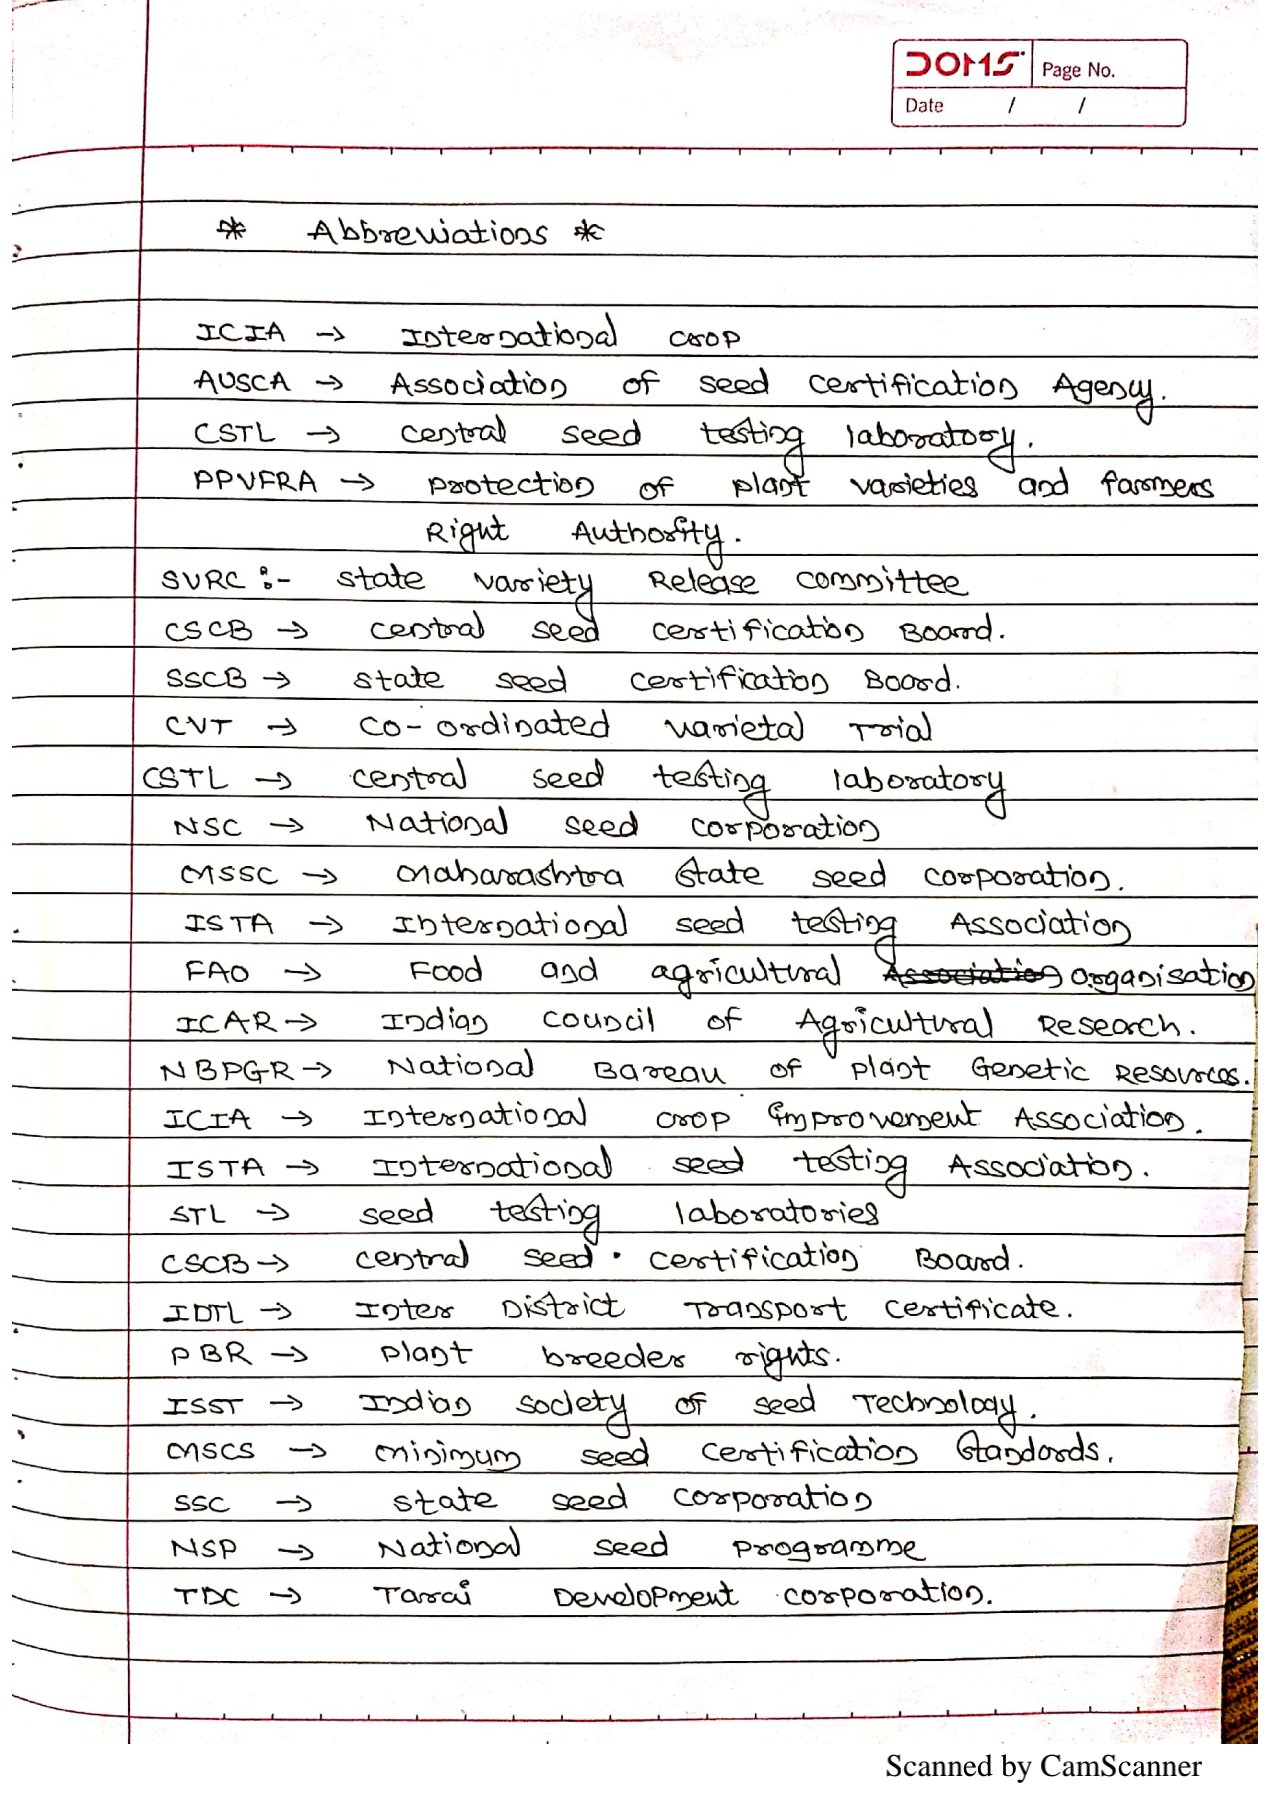 DOMS Page No.
Date / /
* Abbreviations *
ICIA → International crop
AUSCA → Association of seed certification Agency.
CSTL → central seed testing laboratory.
PPVFRA → protection of plant varieties and farmers
Right Authority.
SVRC :- state variety Release committee
CSCB → central seed certification Board.
SSCB → state seed certification Board.
CVT → co-ordinated varietal Trial
CSTL → central seed testing laboratory
NSC → National seed corporation
MSSC → Maharashtra state seed corporation.
ISTA → International seed testing Association
FAO → Food and agricultural Association organisation
ICAR → Indian council of Agricultural Research.
NBPGR → National Bareau of plant Genetic Resources.
ICIA → International crop improvement Association.
ISTA → International seed testing Association.
STL → seed testing laboratories
CSCB → central seed certification Board.
IDTL → Inter District Transport certificate.
PBR → plant breeder rights.
ISST → Indian society of seed Technology.
MSCS → minimum seed certification standards.
SSC → state seed corporation
NSP → National seed programme
TDC → Tarai Development corporation.
Scanned by CamScanner